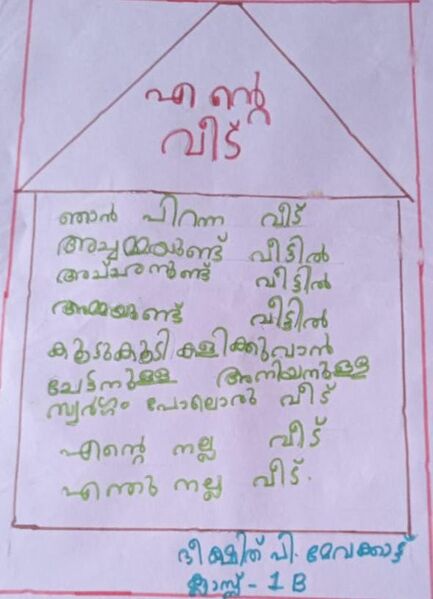 എന്റെ
വീട്
ഞാൻ പിറന്ന വീട്
അച്ചമ്മയുണ്ട് വീട്ടിൽ
അച്ഛനുണ്ട് വീട്ടിൽ
അമ്മയുണ്ട് വീട്ടിൽ
കൂട്ടുകൂടി കളിക്കുവാൻ
ചേട്ടനുള്ള അനിയനുള്ള
സ്വർഗ്ഗം പോലൊരു വീട്
എന്റെ നല്ല വീട്
എന്തു നല്ല വീട്.
ദീക്ഷിത് പി.
ക്ലാസ്സ് - 1 B